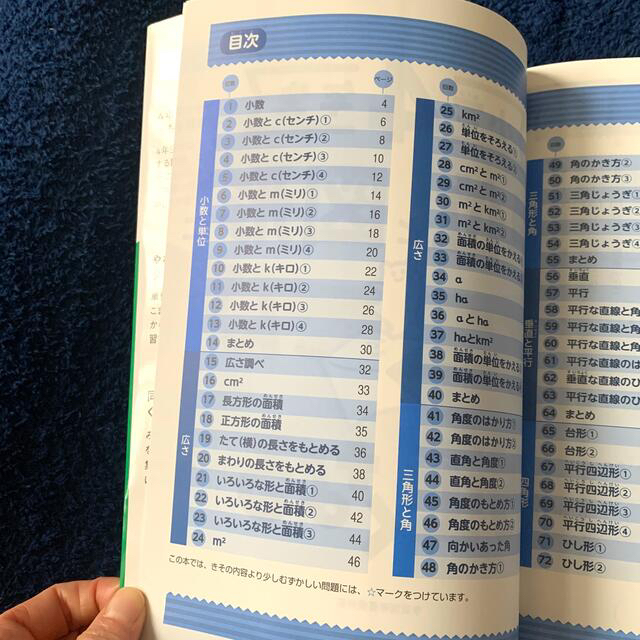 目次
回数 ページ
小数と単位
1 小数 4
2 小数とc(センチ)① 6
3 小数とc(センチ)② 8
4 小数とc(センチ)③ 10
5 小数とc(センチ)④ 12
6 小数とm(ミリ)① 14
7 小数とm(ミリ)② 16
8 小数とm(ミリ)③ 18
9 小数とm(ミリ)④ 20
10 小数とk(キロ)① 22
11 小数とk(キロ)② 24
12 小数とk(キロ)③ 26
13 小数とk(キロ)④ 28
14 まとめ 30
広さ
15 広さ調べ 32
16 cm² 33
17 長方形の面積 34
18 正方形の面積 35
19 たて(横)の長さをもとめる 36
20 まわりの長さをもとめる 38
21 いろいろな形と面積① 40
22 いろいろな形と面積② 42
23 いろいろな形と面積③ 44
24 m² 46
この本では、きその内容より少しむずかしい問題には、☆マークをつけています。
回数
広さ
25 km²
26 単位をそろえる
27 単位をそろえる
28 cm²とm²①
29 cm²とm²②
30 m²とkm²①
31 m²とkm²②
32 面積の単位をかえる
33 面積の単位をかえる
34 a
35 ha
36 aとha
37 haとkm²
38 面積の単位をかえる
39 面積の単位をかえる
40 まとめ
三角形と角
41 角度のはかり方①
42 角度のはかり方②
43 直角と角度①
44 直角と角度②
45 角度のもとめ方①
46 角度のもとめ方②
47 向かいあった角
48 角のかき方①
回数
三角形と角
49 角のかき方②
50 角のかき方③
51 三角じょうぎ①
52 三角じょうぎ②
53 三角じょうぎ③
54 三角じょうぎ④
55 まとめ
垂直と平行
56 垂直
57 平行
58 平行な直線と角
59 平行な直線と角
60 平行な直線と角
61 平行な直線のは
62 垂直な直線のひ
63 平行な直線のひ
64 まとめ
四角形
65 台形①
66 台形②
67 平行四辺形①
68 平行四辺形②
69 平行四辺形③
70 平行四辺形④
71 ひし形①
72 ひし形②